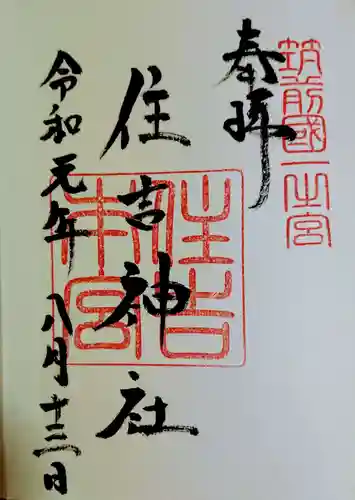 筑前國一之宮
奉拝
住吉神社
住吉本宮
令和元年 八月十三日